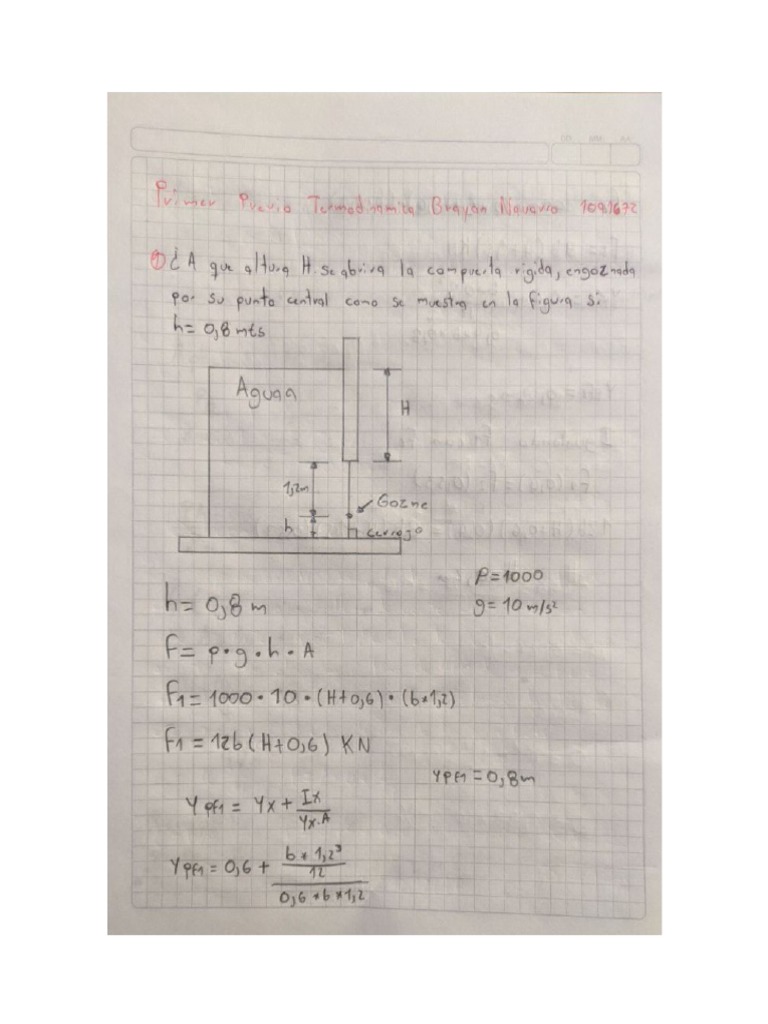 Primer Previo Termodinamica Brayan Navarro 1091672
① ¿A que altura H se abrira la compuerta rigida, engoznada
por su punto central como se muestra en la figura si
h= 0,8 mts
Aguaa
H
1,2m
Gozne
h
cerrojo
h= 0,8 m
ρ=1000
g= 10 m/s²
F= ρ·g·h·A
F1= 1000·10·(H+0,6)·(b*1,2)
F1= 12b(H+0,6) KN
YPF1 = 0,8m
YPF1 = Yx + Ix / Yx.A
YPF1 = 0,6 + b*1,2³ / 12 / 0,6*b*1,2